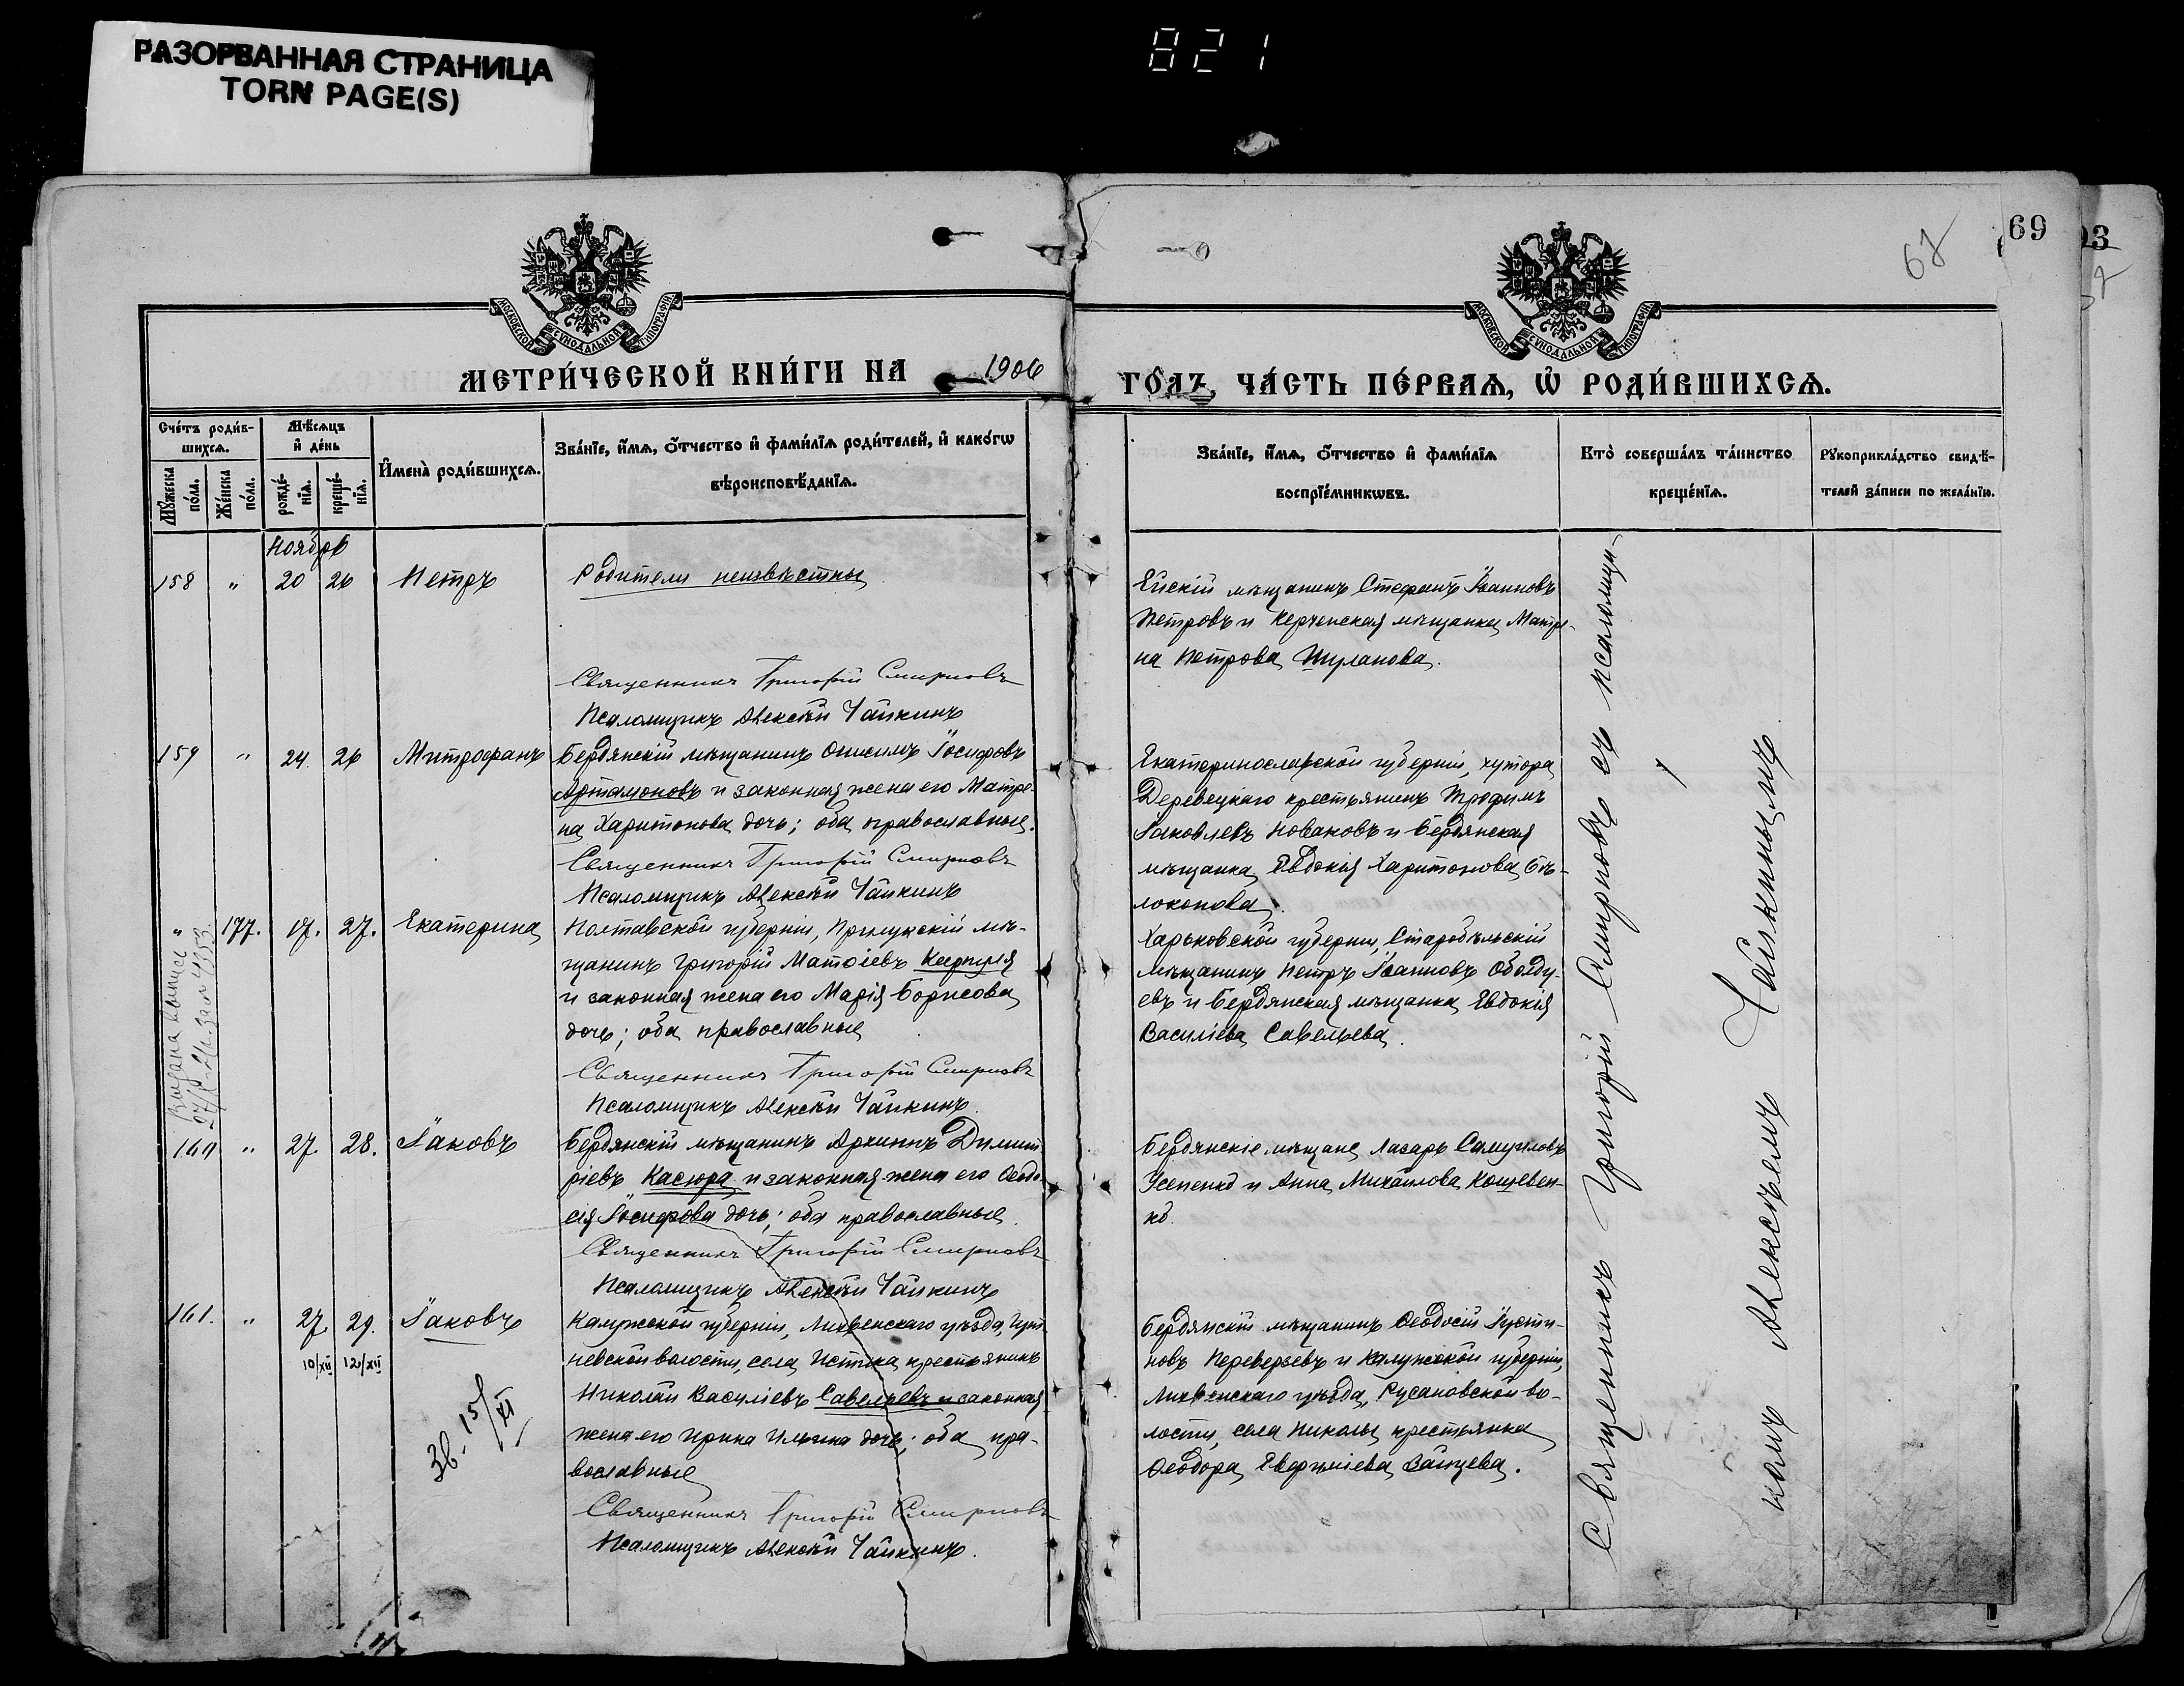 РАЗОРВАННАЯ СТРАНИЦА
TORN PAGE(S)
821
69
МОСКОВСКОЙ СѴНОДАЛЬНОЙ ТИПОГРАФІИ
МОСКОВСКОЙ СѴНОДАЛЬНОЙ ТИПОГРАФІИ
МЕТРИ́ЧЕСКОЙ КНИ́ГИ НА 1906
ГО́ДЪ, ЧА́СТЬ ПЕ́РВАѦ, Ѡ҆ РОДИ́ВШИХСѦ.
Сче́тъ роди́в-
шихсѧ.
Мꙋ́жеска по́ла.
Же́нска по́ла.
Мѣ́сѧцъ
и҆ де́нь
рожде́-
нїѧ.
креще́-
нїѧ.
И҆мена̀ роди́вшихсѧ.
Зва́нїе, и҆́мѧ, ѻ҆́тчество и҆ фами́лїѧ роди́телей, и҆ како́гѡ
вѣроисповѣ́данїѧ.
Зва́нїе, и҆́мѧ, ѻ҆́тчество и҆ фами́лїѧ
воспрїе́мникѡвъ.
Кто̀ соверша́лъ та́инство
креще́нїѧ.
Рꙋкоприкла́дство свидѣ́-
телей за́писи по жела́нїю.
Ноябрь
158 " 20 26 Петръ
Родители неизвѣстны
Ейскій мѣщанинъ Стефанъ Іоанновъ
Петровъ и Керченская мѣщанка Матре-
на Петрова
Священникъ Григорій Смирновъ
Псаломщикъ Алексѣй Чайкинъ
159 " 24. 26 Митрофанъ
Бердянскій мѣщанинъ Онисимъ Іосифовъ
Артамоновъ и законная жена его Матре-
на Харитонова дочь; оба православные.
Священникъ Григорій Смирновъ
Псаломщикъ Алексѣй Чайкинъ
Екатеринославской губерніи, хутора
Деревецкаго крестьянинъ Трофимъ
Іаковлевъ Новаковъ и Бердянская
мѣщанка Евдокія Харитонова Бѣ-
локонова.
" 177. 17. 27. Екатерина
Полтавской губерніи, Прилукскій мѣ-
щанинъ Григорій Матѳіевъ Кирпуля
и законная жена его Марія Борисова
дочь; оба православные
Священникъ Григорій Смирновъ
Псаломщикъ Алексѣй Чайкинъ.
Харьковской губерніи, Старобѣльскій
мѣщанинъ Петръ Іоанновъ Оболду-
евъ и Бердянская мѣщанка Евдокія
Василіева Савельева.
Выдана
160 " 27. 28. Іаковъ
Бердянскій мѣщанинъ Архипъ Димит-
ріевъ Касюра и законная жена его Ѳеодо-
сія Іосифова дочь; оба православные.
Священникъ Григорій Смирновъ
Псаломщикъ Алексѣй Чайкинъ
Бердянскіе мѣщане Лазарь Самуиловъ
Усенко и Анна Михайлова Кошевен-
ко.
161. " 27. 29. Іаковъ
10/XII 12/XII
Зв. 15/XI
Калужской губерніи, Лихвенскаго уѣзда,
невской волости, села Истика крестьянинъ
Николай Василіевъ Савельевъ и законная
жена его Ирина Ильина дочь; оба пра-
вославные
Священникъ Григорій Смирновъ
Псаломщикъ Алексѣй Чайкинъ.
Бердянскій мѣщанинъ Ѳеодосій Іусти-
новъ Переверзевъ и Калужской губерніи,
Лихвенскаго уѣзда, Русановской во-
лости, села Николы крестьянка
Ѳеодора Евфиміева Зайцева.
Священникъ Григорій Смирновъ съ псаломщи-
комъ Алексѣемъ Чайкинымъ